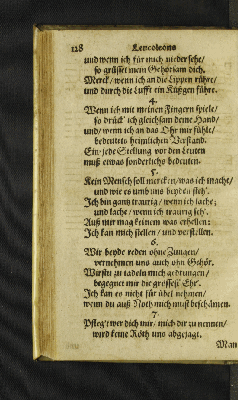 128 Leucoleons
und wenn ich für mich nieder sehe/
so grüsset mein Gehorsam dich.
Merck/ wenn ich an die Lippen rühre/
und durch die Lufft ein Küßgen führe.
4.
Wenn ich mit meinen Fingern spiele/
so drück' ich gleichsam deine Hand/
und/ wenn ich an das Ohr mir fühle/
bedeutets heimlichen Verstand.
Ein jede Stellung vor den Leuten
muß etwas sonderlichs bedeuten.
5.
Kein Mensch soll mercken/ was ich mache/
und wie es umb uns beyden steh'.
Ich bin gantz traurig/ wenn ich lache;
und lache/ wenn ich traurig seh'.
Auß mir mag keinem was erhellen:
Ich kan mich stellen/ und verstellen.
6.
Wir beyde reden ohne Zungen/
vernehmen uns auch ohn Gehör.
Wirstu zu tadeln mich gedrungen/
begegnet mir die grösseste Ehr'.
Ich kan es nicht für übel nehmen/
wenn du auß Noth mich must beschämen.
7.
Pflegt wer dich mir/ mich dir zu nennen/
wird keine Röth uns abgejagt.
Man